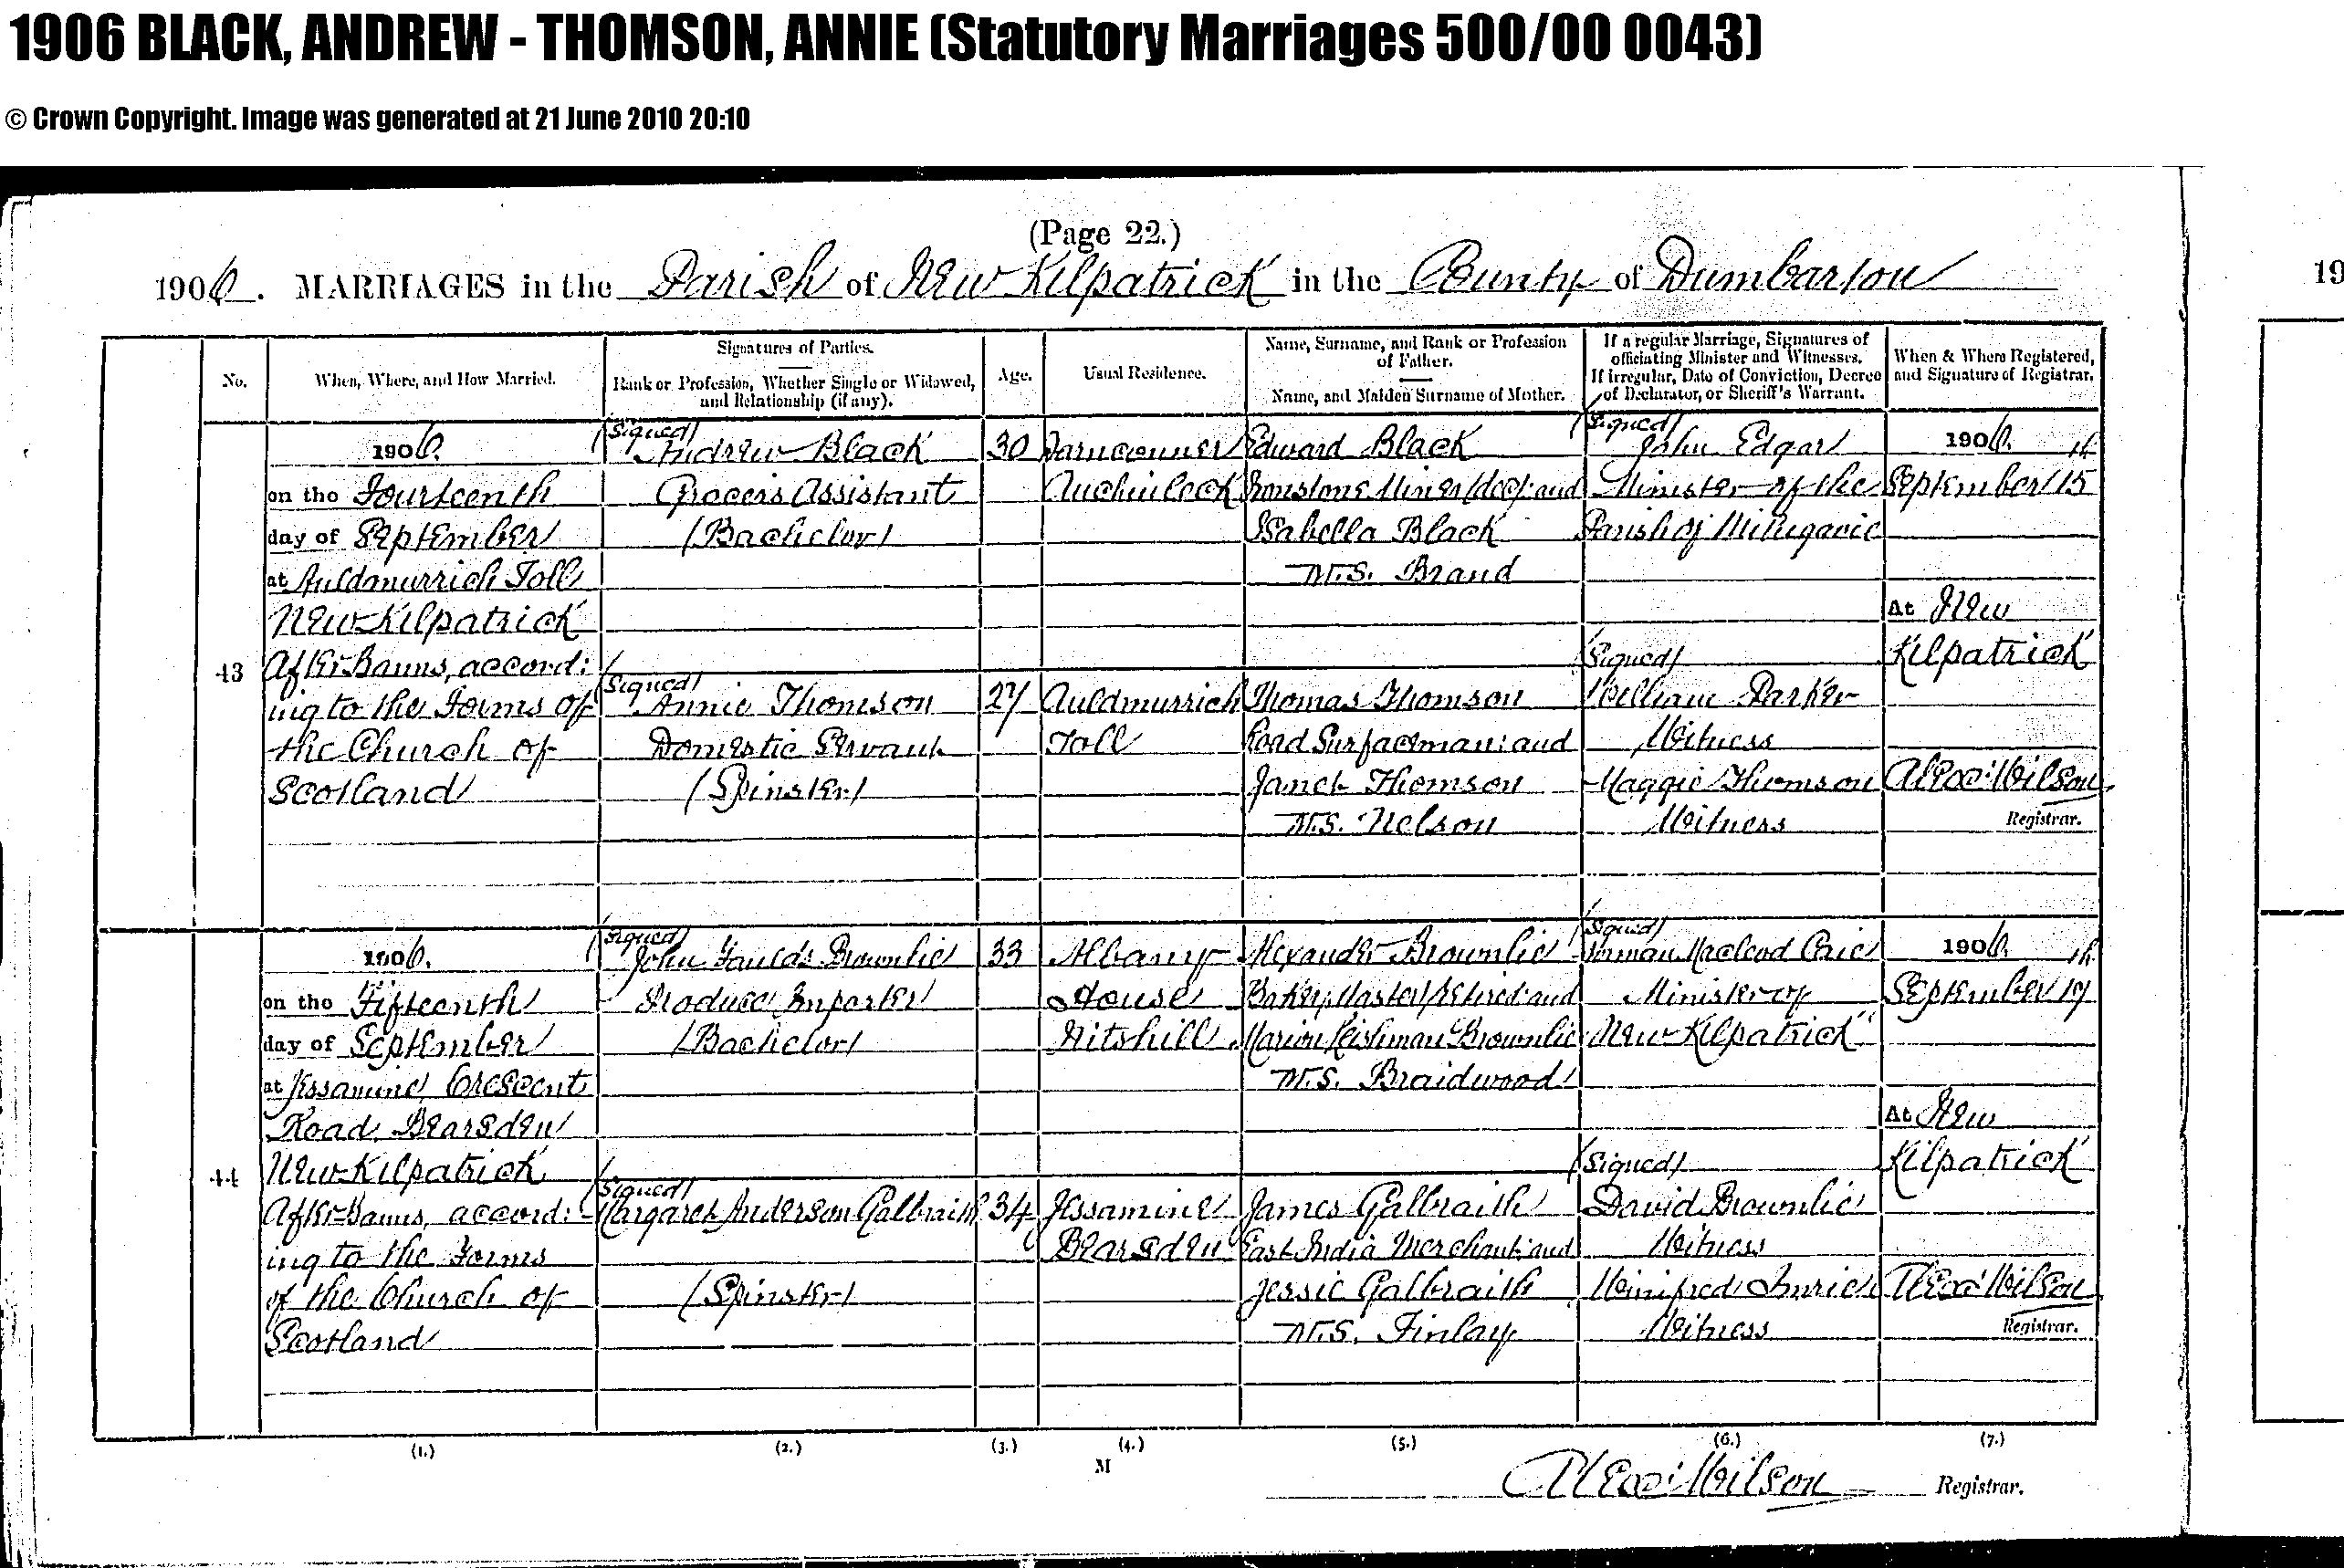 1906 BLACK, ANDREW - THOMSON, ANNIE (Statutory Marriages 500/00 0043)
© Crown Copyright. Image was generated at 21 June 2010 20:10
(Page 22.)
1906. MARRIAGES in the Parish of New Kilpatrick in the County of Dumbarton
19
No.
When, Where, and How Married.
Signatures of Parties.
Rank or Profession, Whether Single or Widowed,
and Relationship (if any).
Age.
Usual Residence.
Name, Surname, and Rank or Profession
of Father.
Name, and Maiden Surname of Mother.
If a regular Marriage, Signatures of
officiating Minister and Witnesses.
If irregular, Date of Conviction, Decree
of Declarator, or Sheriff's Warrant.
When & Where Registered,
and Signature of Registrar.
43
1906.
on the Fourteenth
day of September
at Auldmurrich Toll
New Kilpatrick
After Banns, accord:
ing to the Forms of
the Church of
Scotland
(Signed)
Andrew Black
Grocers Assistant
(Bachelor)
(Signed)
Annie Thomson
Domestic Servant
(Spinster)
30
27
Darnconner
Auchinleck
Auldmurrich
Toll
Edward Black
Ironstone Miner (dec): and
Isabella Black
M.S. Brand
Thomas Thomson
Road Surfaceman: and
Janet Thomson
M.S. Nelson
(Signed)
John Edgar
Minister of the
Parish of Milngavie
(Signed)
William Parker
Witness
Maggie Thomson
Witness
1906.
September 15th
At New
Kilpatrick
Alexr. Wilson
Registrar.
44
1906.
on the Fifteenth
day of September
at Jessamine, Crescent
Road, Bearsden
New Kilpatrick
After Banns, accord:
ing to the Forms
of the Church of
Scotland
(Signed)
John Faulds Brownlie
Produce Importer
(Bachelor)
(Signed)
Margaret Anderson Galbraith
(Spinster)
33
34
Albany
House
Nitshill
Jessamine
Bearsden
Alexander Brownlie
Baker, Master/retired: and
Marion Leishman Brownlie
M.S. Braidwood
James Galbraith
East India Merchant: and
Jessie Galbraith
M.S. Finlay
(Signed)
Norman Macleod Caie
Minister of
New Kilpatrick
(Signed)
David Brownlie
Witness
Winifred Imrie
Witness
1906.
September 17th
At New
Kilpatrick
Alexr. Wilson
Registrar.
(1.) (2.) (3.) (4.) (5.) (6.) (7.)
M
Alexr. Wilson Registrar.